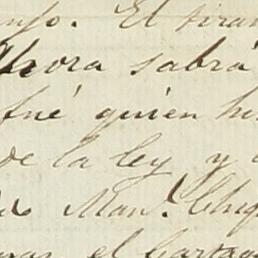 El tiran
Ahora sabrá
fué quien hi
de la ley y
Man.l Chiq
el Cartag